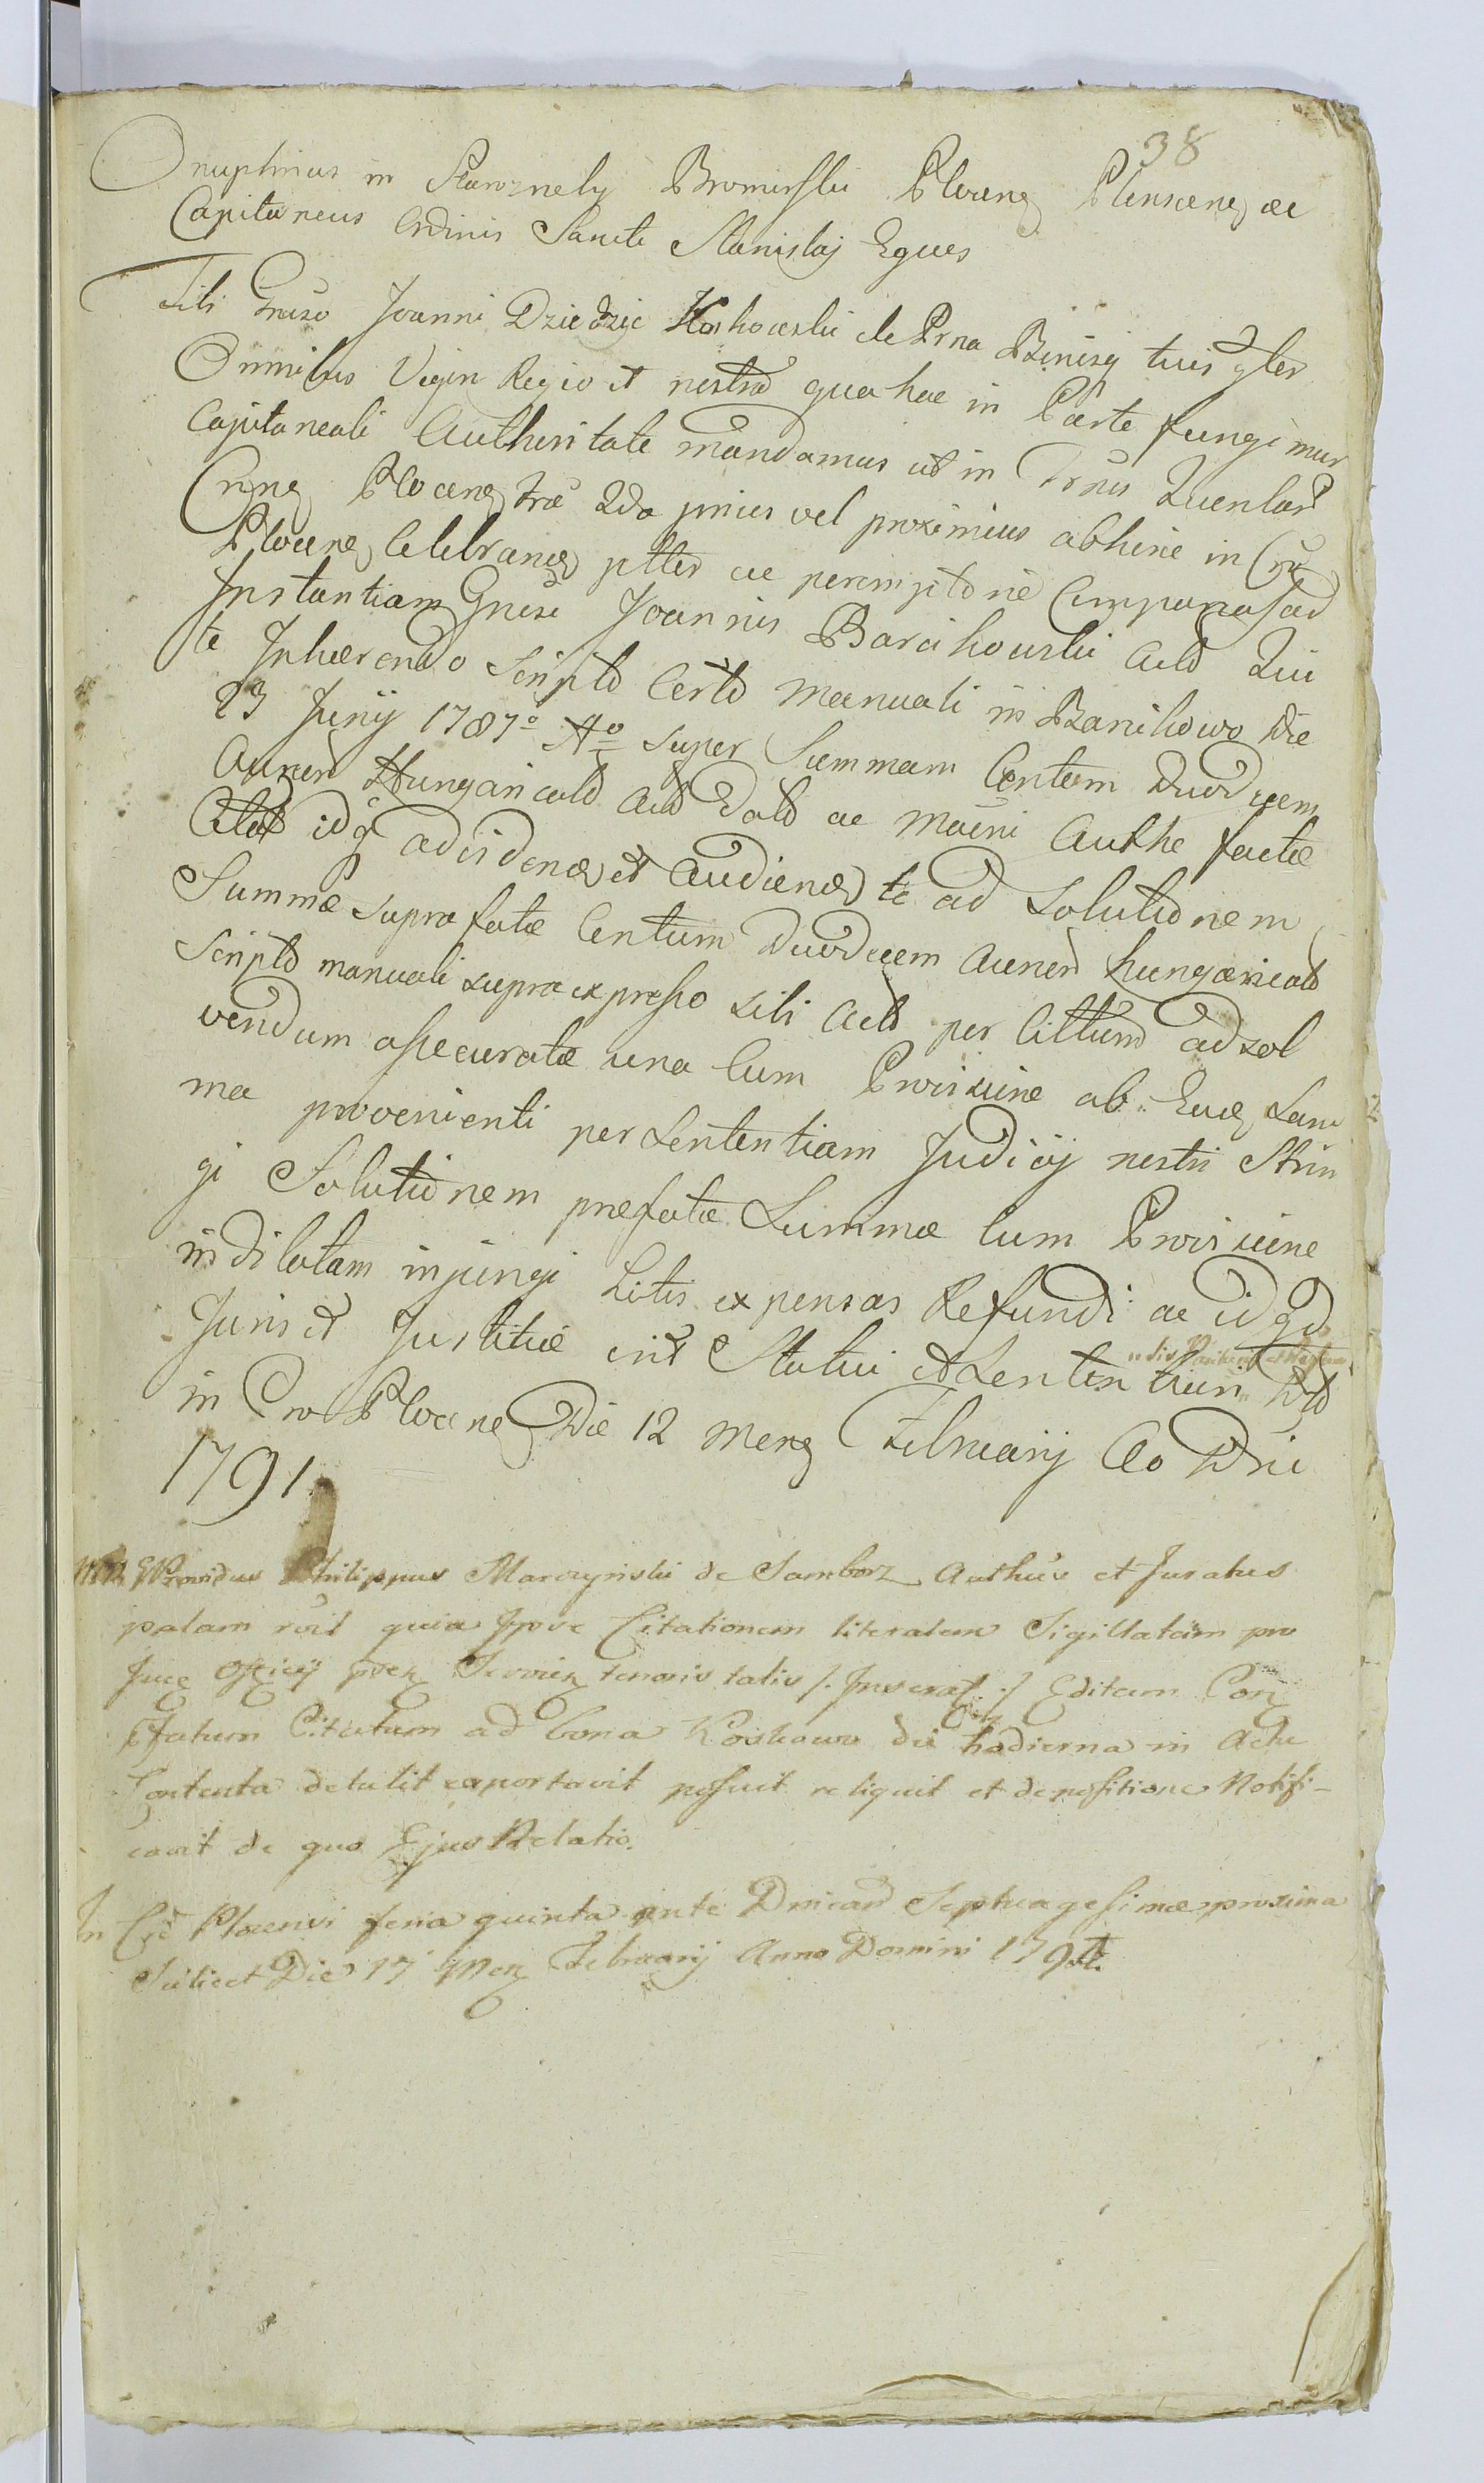 38
Onuphrius in Skarzneky Bromirski Plocens Plonscens ac
Capitaneus Ordinis Sancti Stanislaj Eques
Tibi Gnroso Joanni Dziedzic Koskowski de Prna Bonisq tuis gler
Omnibus Vigin Regio et nostra qua hac in Parte fungimur
Capitaneali Authoritate mandamus ut in Trnis Querelar
Crnng Plocens trae 2da prius vel proximius abhinc in Cro
Plocens Celebrands pltter ac peremptorie Compareas ad
Instantiam Gnrsi Joannis Barcikowski Acto Qui
te Inhaerendo Scripto Certo Manuali in Banikowo Die
23 Junij 1787o Ao super Summam Centum Duodecem
Aureor Hungaricalo Acto dato ac Manu Authe factae
Citat idq ad viden et Audiend te ad Solutionem
Summae suprafatae Centum Duodecem Aureor hungaricalo
Scripto manuali supra expresso sibi Acto per Cittum ad sol
vendum assecuratae una Cum Provisione ab Eade Sum
ma provenienti per Sententiam Judicij nostri Strin
gi Solutionem praefatae Summae Cum Provisione
indilatam injungi Litis expensas Refundi ac id Qd
Juris et Justitiae erit Statui et Sententian Dtt
in Cro Plocens Die 12 Mens Februarij Ao Dni
1791.
Providus Philippus Marczynski de Samborz Authus et Juratus
palam rcit quia Ipse Citationem literalem Sigillatam pro
Juce Officij pnen Servien tenoris talis /. Inserat ./ Editam Con
Citatum ad bona Koskowo die hodierna in Actu
Contenta detulit reportavit posuit reliquit et de positione Notifi-
cavit de quo Ejus Relatio.
In Cro Plocensi feria quinta ante Dnicam Septuagesimae proxima
Scilicet Die 17 Mens Februarij Anno Domini 1791